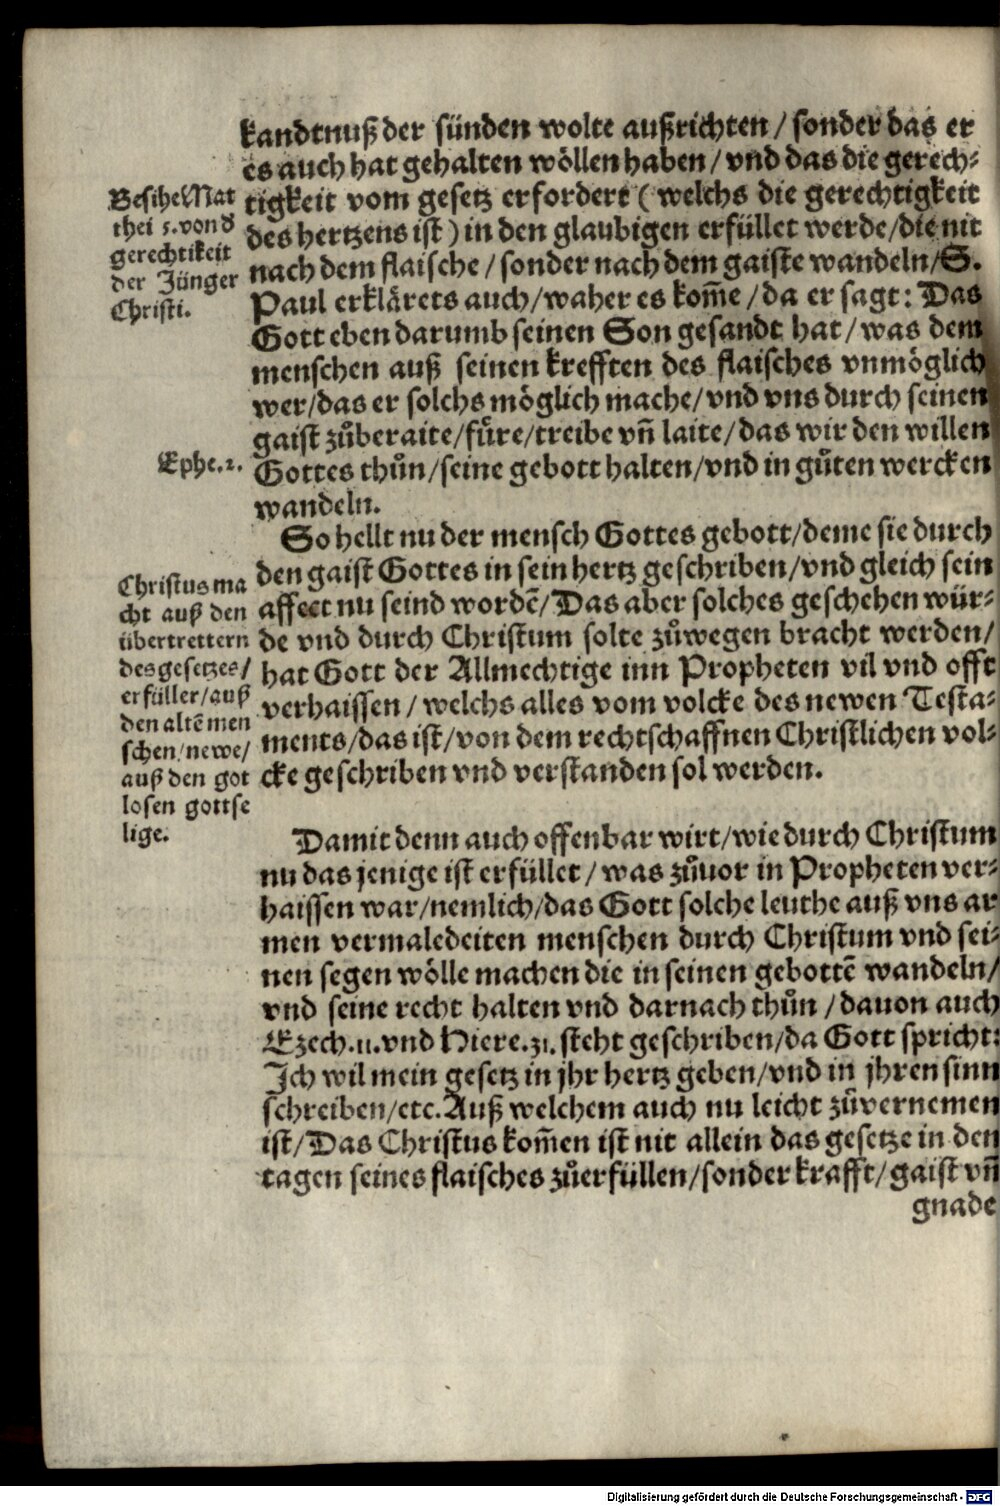 kandtnuß der sünden wolte außrichten / sonder das er
es auch hat gehalten wöllen haben / vnd das die gerech⸗
tigkeit vom gesetz erfordert ( welchs die gerechtigkeit
des hertzens ist ) in den glaubigen erfüllet werde/die nit
nach dem flaische / sonder nach dem gaiste wandeln/S.
Paul erklärets auch/waher es kom̃e / da er sagt: Das
Gott eben darumb seinen Son gesandt hat / was dem
menschen auß seinen krefften des flaisches vnmöglich
wer/das er solchs möglich mache/vnd vns durch seinen
gaist zůberaite/füre/treibe vñ laite/das wir den willen
Gottes thůn/seine gebott halten/vnd in gůten wercken
wandeln.
Besihe Mat
thei 5. von d
gerechtikeit
der Jünger
Christi.
Ephe.2.
So hellt nu der mensch Gottes gebott/deme sie durch
den gaist Gottes in sein hertz geschriben/vnd gleich sein
affect nu seind wordẽ/Das aber solches geschehen wür⸗
de vnd durch Christum solte zůwegen bracht werden/
hat Gott der Allmechtige inn Propheten vil vnd offt
verhaissen / welchs alles vom volcke des newen Testa⸗
ments/das ist/von dem rechtschaffnen Christlichen vol⸗
cke geschriben vnd verstanden sol werden.
Christus ma
cht auß den
übertrettern
des gesetzes/
erfüller/auß
den altẽ men
schen/newe/
auß den got
losen gottse
lige.
Damit denn auch offenbar wirt/wie durch Christum
nu das jenige ist erfüllet / was zůuor in Propheten ver⸗
haissen war/nemlich/das Gott solche leuthe auß vns ar
men vermaledeiten menschen durch Christum vnd sei⸗
nen segen wölle machen die in seinen gebottẽ wandeln/
vnd seine recht halten vnd darnach thůn / dauon auch
Ezech.11.vnd Hiere.31.steht geschriben/da Gott spricht:
Ich wil mein gesetz in jhr hertz geben/vnd in jhren sinn
schreiben/etc. Auß welchem auch nu leicht zůvernemen
ist/Das Christus kom̃en ist nit allein das gesetze in den
tagen seines flaisches zůerfüllen/sonder krafft/gaist vñ
gnade
Digitalisierung gefördert durch die Deutsche Forschungsgemeinschaft - DFG